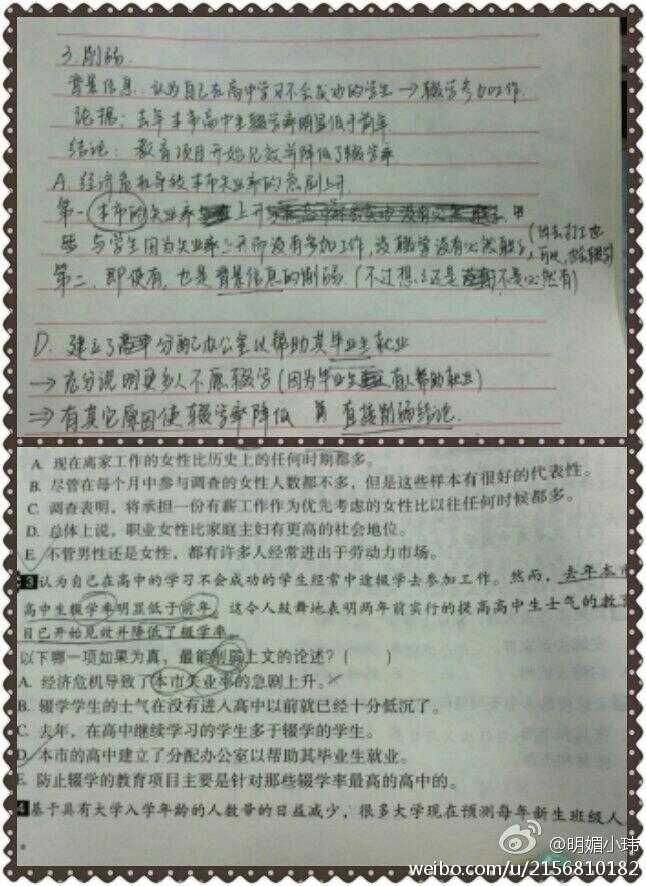 3.削弱.
背景信息:认为自己在高中学习不会成功的学生→辍学参加工作.
论据:去年本市高中生辍学率明显低于前年
结论:教育项目开始见效并降低了辍学率
A.经济危机导致本市失业率的急剧上升.
第一.本市的失业率上升
与学生因为失业率上升而没有参加工作,
第二.即使有,也是背景信息的削弱.(不过想了还是不是必然有)
D.建立了分配办公室以帮助其毕业生就业
→充分说明更多人不愿辍学(因为毕业生有人帮助就业)
⇒有其它原因使辍学率降低 直接削弱结论.
A. 现在离家工作的女性比历史上的任何时期都多。
B. 尽管在每个月中参与调查的女性人数都不多,但是这些样本有很好的代表性。
C. 调查表明,将承担一份有薪工作作为优先考虑的女性比以往任何时候都多。
D. 总体上说,职业女性比家庭主妇有更高的社会地位。
E. 不管男性还是女性,都有许多人经常进出于劳动力市场。
3 认为自己在高中的学习不会成功的学生经常中途辍学去参加工作。然而,去年本市
高中生辍学率明显低于前年,这令人鼓舞地表明两年前实行的提高高中生士气的教育
目已开始见效并降低了辍学率。
以下哪一项如果为真,最能削弱上文的论述?( )
A. 经济危机导致了本市失业率的急剧上升。
B. 辍学学生的士气在没有进入高中以前就已经十分低沉了。
C. 去年,在高中继续学习的学生多于辍学的学生。
D. 本市的高中建立了分配办公室以帮助其毕业生就业。
E. 防止辍学的教育项目主要是针对那些辍学率最高的高中的。
4 基于具有大学入学年龄的人数带的日益减少,很多大学现在预测每年新生班级人
@明媚小玮
weibo.com/u/2156810182